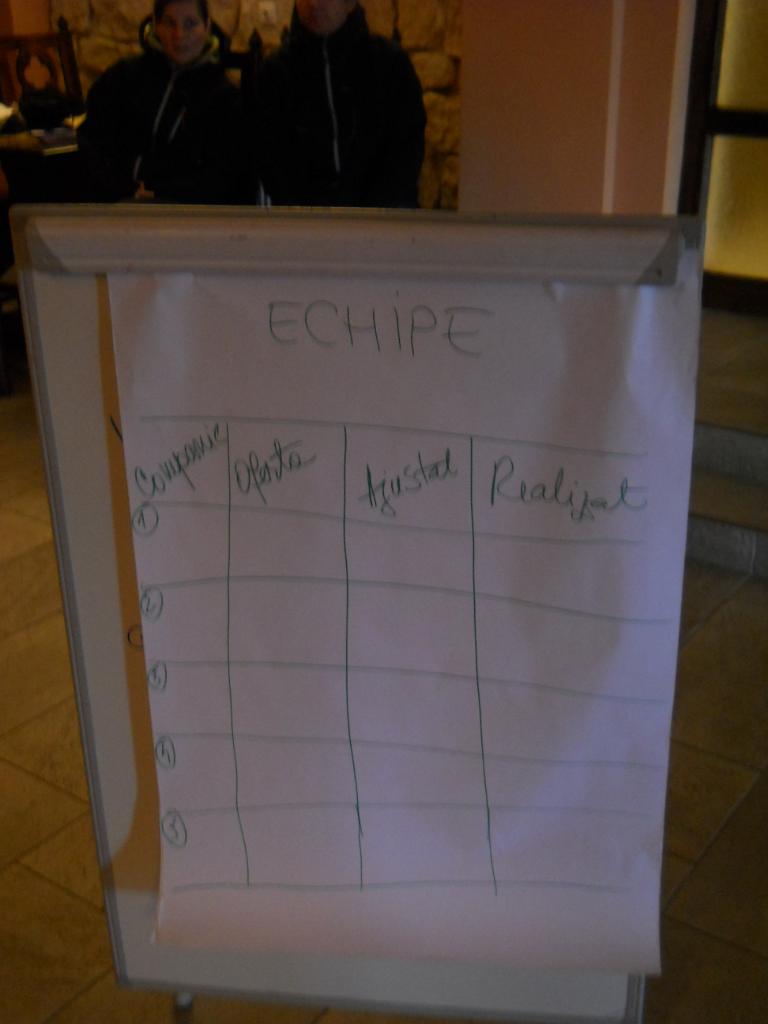 ECHIPE
Companie Oferta Ajustat Realizat
1
2
3
4
5